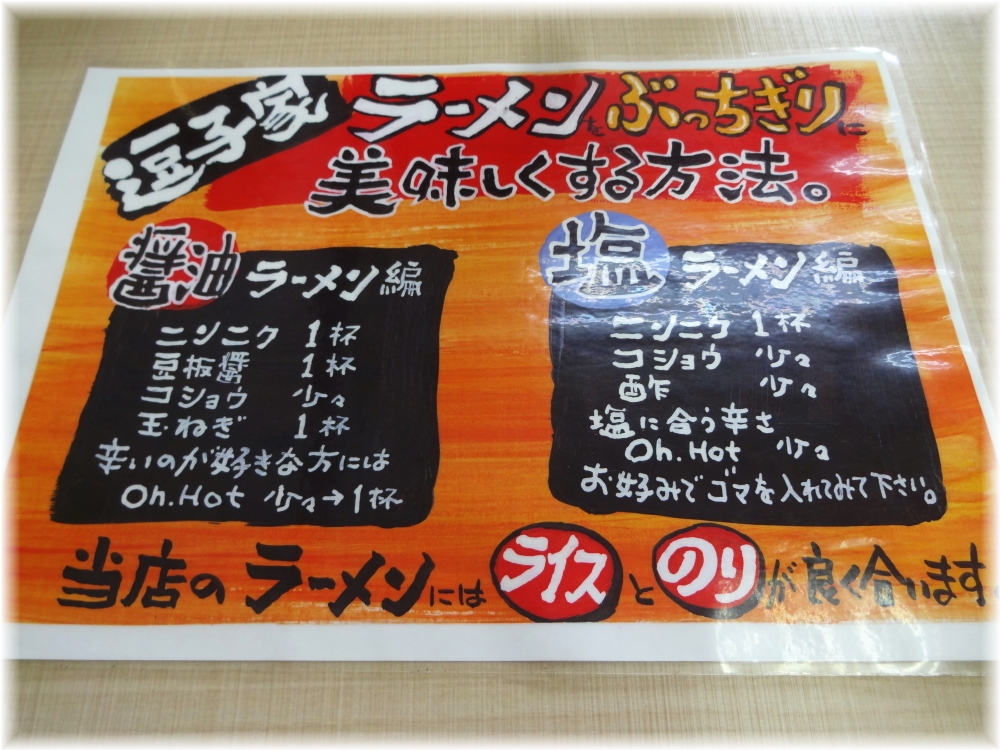 逗子家 ラーメンをぶっちぎりに
美味しくする方法。
醤油ラーメン編
ニンニク 1杯
豆板醤 1杯
コショウ 少々
玉ねぎ 1杯
辛いのが好きな方には
Oh.Hot 少々→1杯
塩ラーメン編
ニンニク 1杯
コショウ 少々
酢 少々
塩に合う辛さ
Oh.Hot 少々
お好みでゴマを入れてみて下さい。
当店のラーメンにはライスとのりが良く合います